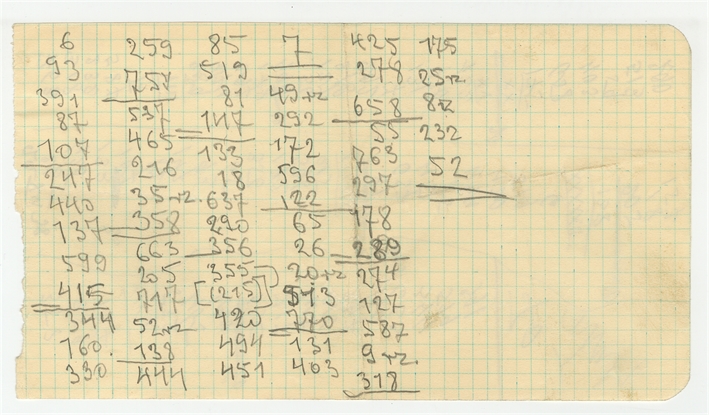 6
93
391
87
107
247
440
137
599
415
344
160
330
259
751
537
465
216
35+2.
358
663
205
717
52+2
138
444
85
519
81
147
133
18
637
290
356
355
[(215)]
420
494
451
7
49+2
292
172
596
122
65
26
20+2
513
270
131
403
425
278
658
55
763
297
178
289
274
127
587
9+2.
318
175
25+2
8+2
232
52